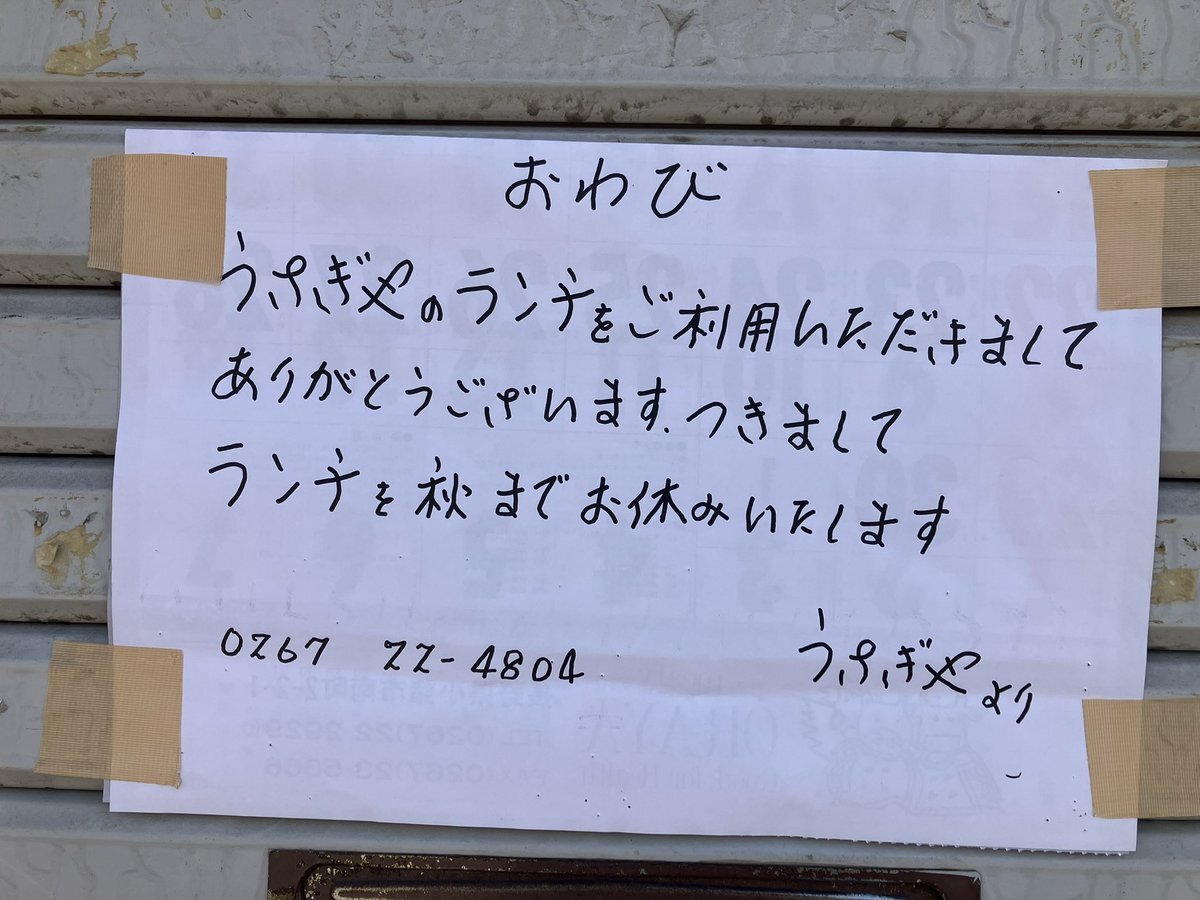 おわび
うさぎやのランチをご利用いただきまして
ありがとうございます。つきまして
ランチを秋までお休みいたします
0267 22-4804
うさぎやより